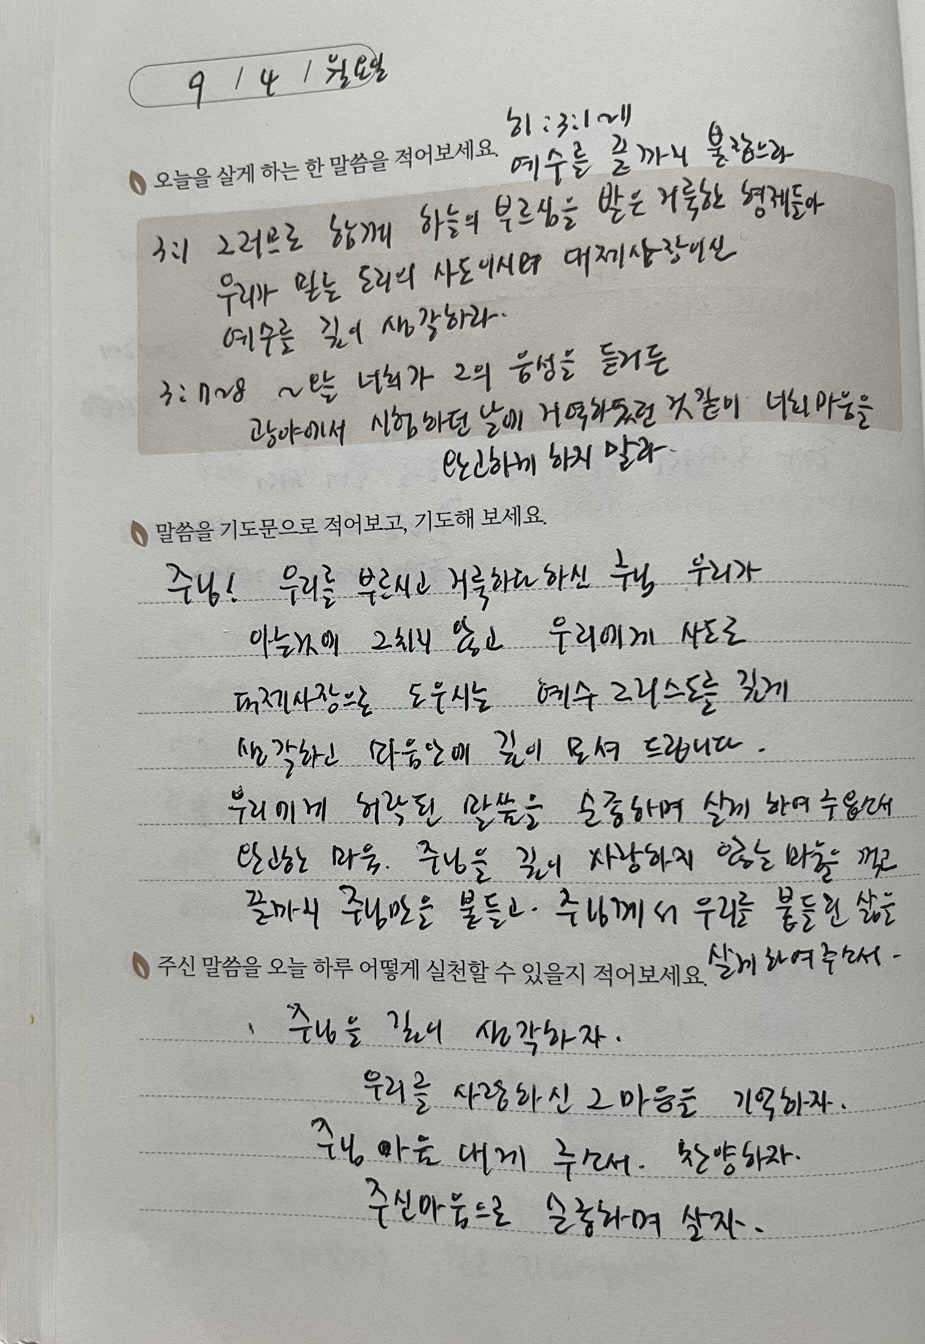 9 / 4 / 월요일
히 : 3:1~11
오늘을 살게 하는 한 말씀을 적어보세요.
예수를 끝까지 붙잡으라
3:1 그러므로 함께 하늘의 부르심을 받은 거룩한 형제들아
우리가 믿는 도리의 사도이시며 대제사장이신
예수를 깊이 생각하라.
3:7~8 ~오늘 너희가 그의 음성을 듣거든
광야에서 시험하던 날에 거역하던 것 같이 너희 마음을
완고하게 하지 말라.
말씀을 기도문으로 적어보고, 기도해 보세요.
주님! 우리를 부르시고 거룩하다 하신 주님 우리가
아는것에 그치지 않고 우리에게 사도로
대제사장으로 도우시는 예수 그리스도를 깊게
생각하고 마음안에 깊이 모셔 드립니다.
우리에게 허락된 말씀을 순종하며 살게 하여 주옵소서
완고한 마음. 주님을 깊이 사랑하지 않는 마음을 꺾고
끝까지 주님만을 붙들고. 주님께서 우리를 붙들린 삶을
살게하여주소서.
주신 말씀을 오늘 하루 어떻게 실천할 수 있을지 적어보세요.
주님을 깊이 생각하자.
우리를 사랑하신 그 마음을 기억하자.
주님 마음 내게 주소서. 찬양하자.
주신마음으로 순종하며 살자.